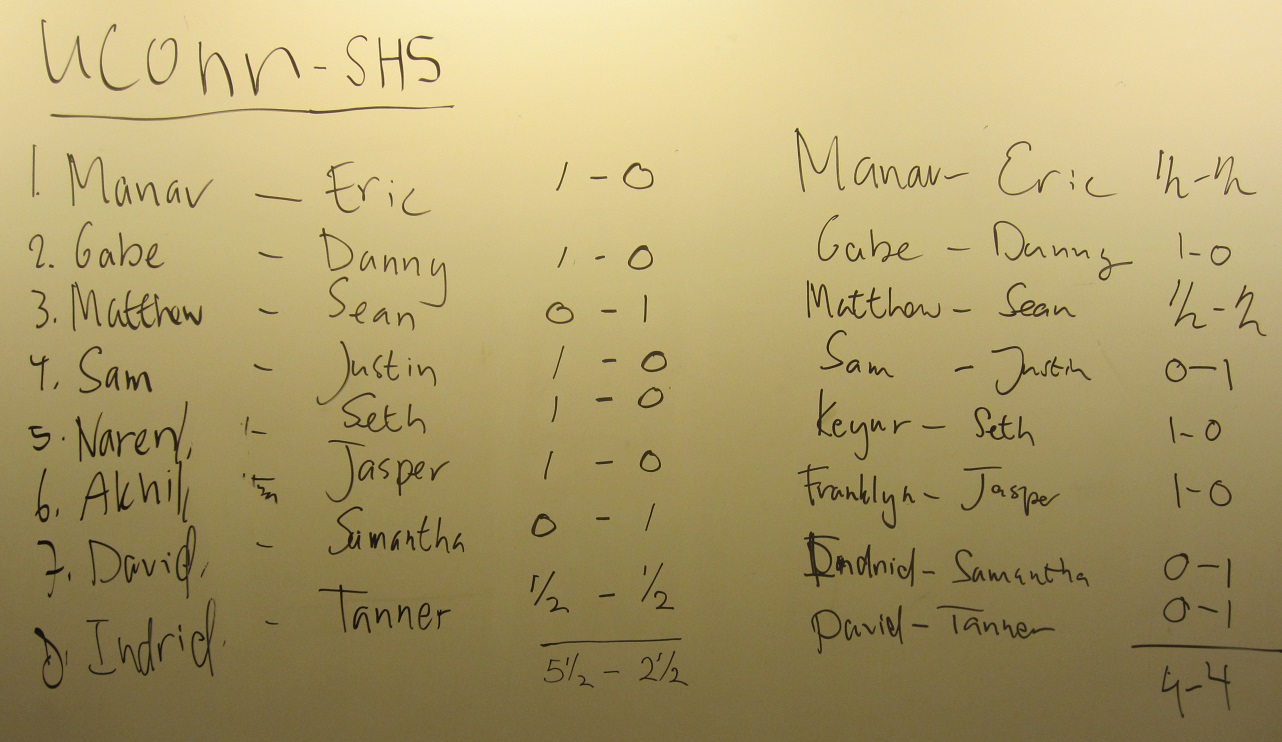 UConn-SHS
1. Manav — Eric 1 - 0
2. Gabe - Danny 1 - 0
3. Matthew - Sean 0 - 1
4. Sam - Justin 1 - 0
5. Naren - Seth 1 - 0
6. Akhil - Jasper 1 - 0
7. David - Samantha 0 - 1
8. Indrid - Tanner 1/2 - 1/2
5 1/2 - 2 1/2
Manav - Eric 1/2 - 1/2
Gabe - Danny 1-0
Matthew - Sean 1/2 - 1/2
Sam - Justin 0-1
Keyur - Seth 1-0
Franklyn - Jasper 1-0
Indrid - Samantha 0-1
David - Tanner 0-1
4-4